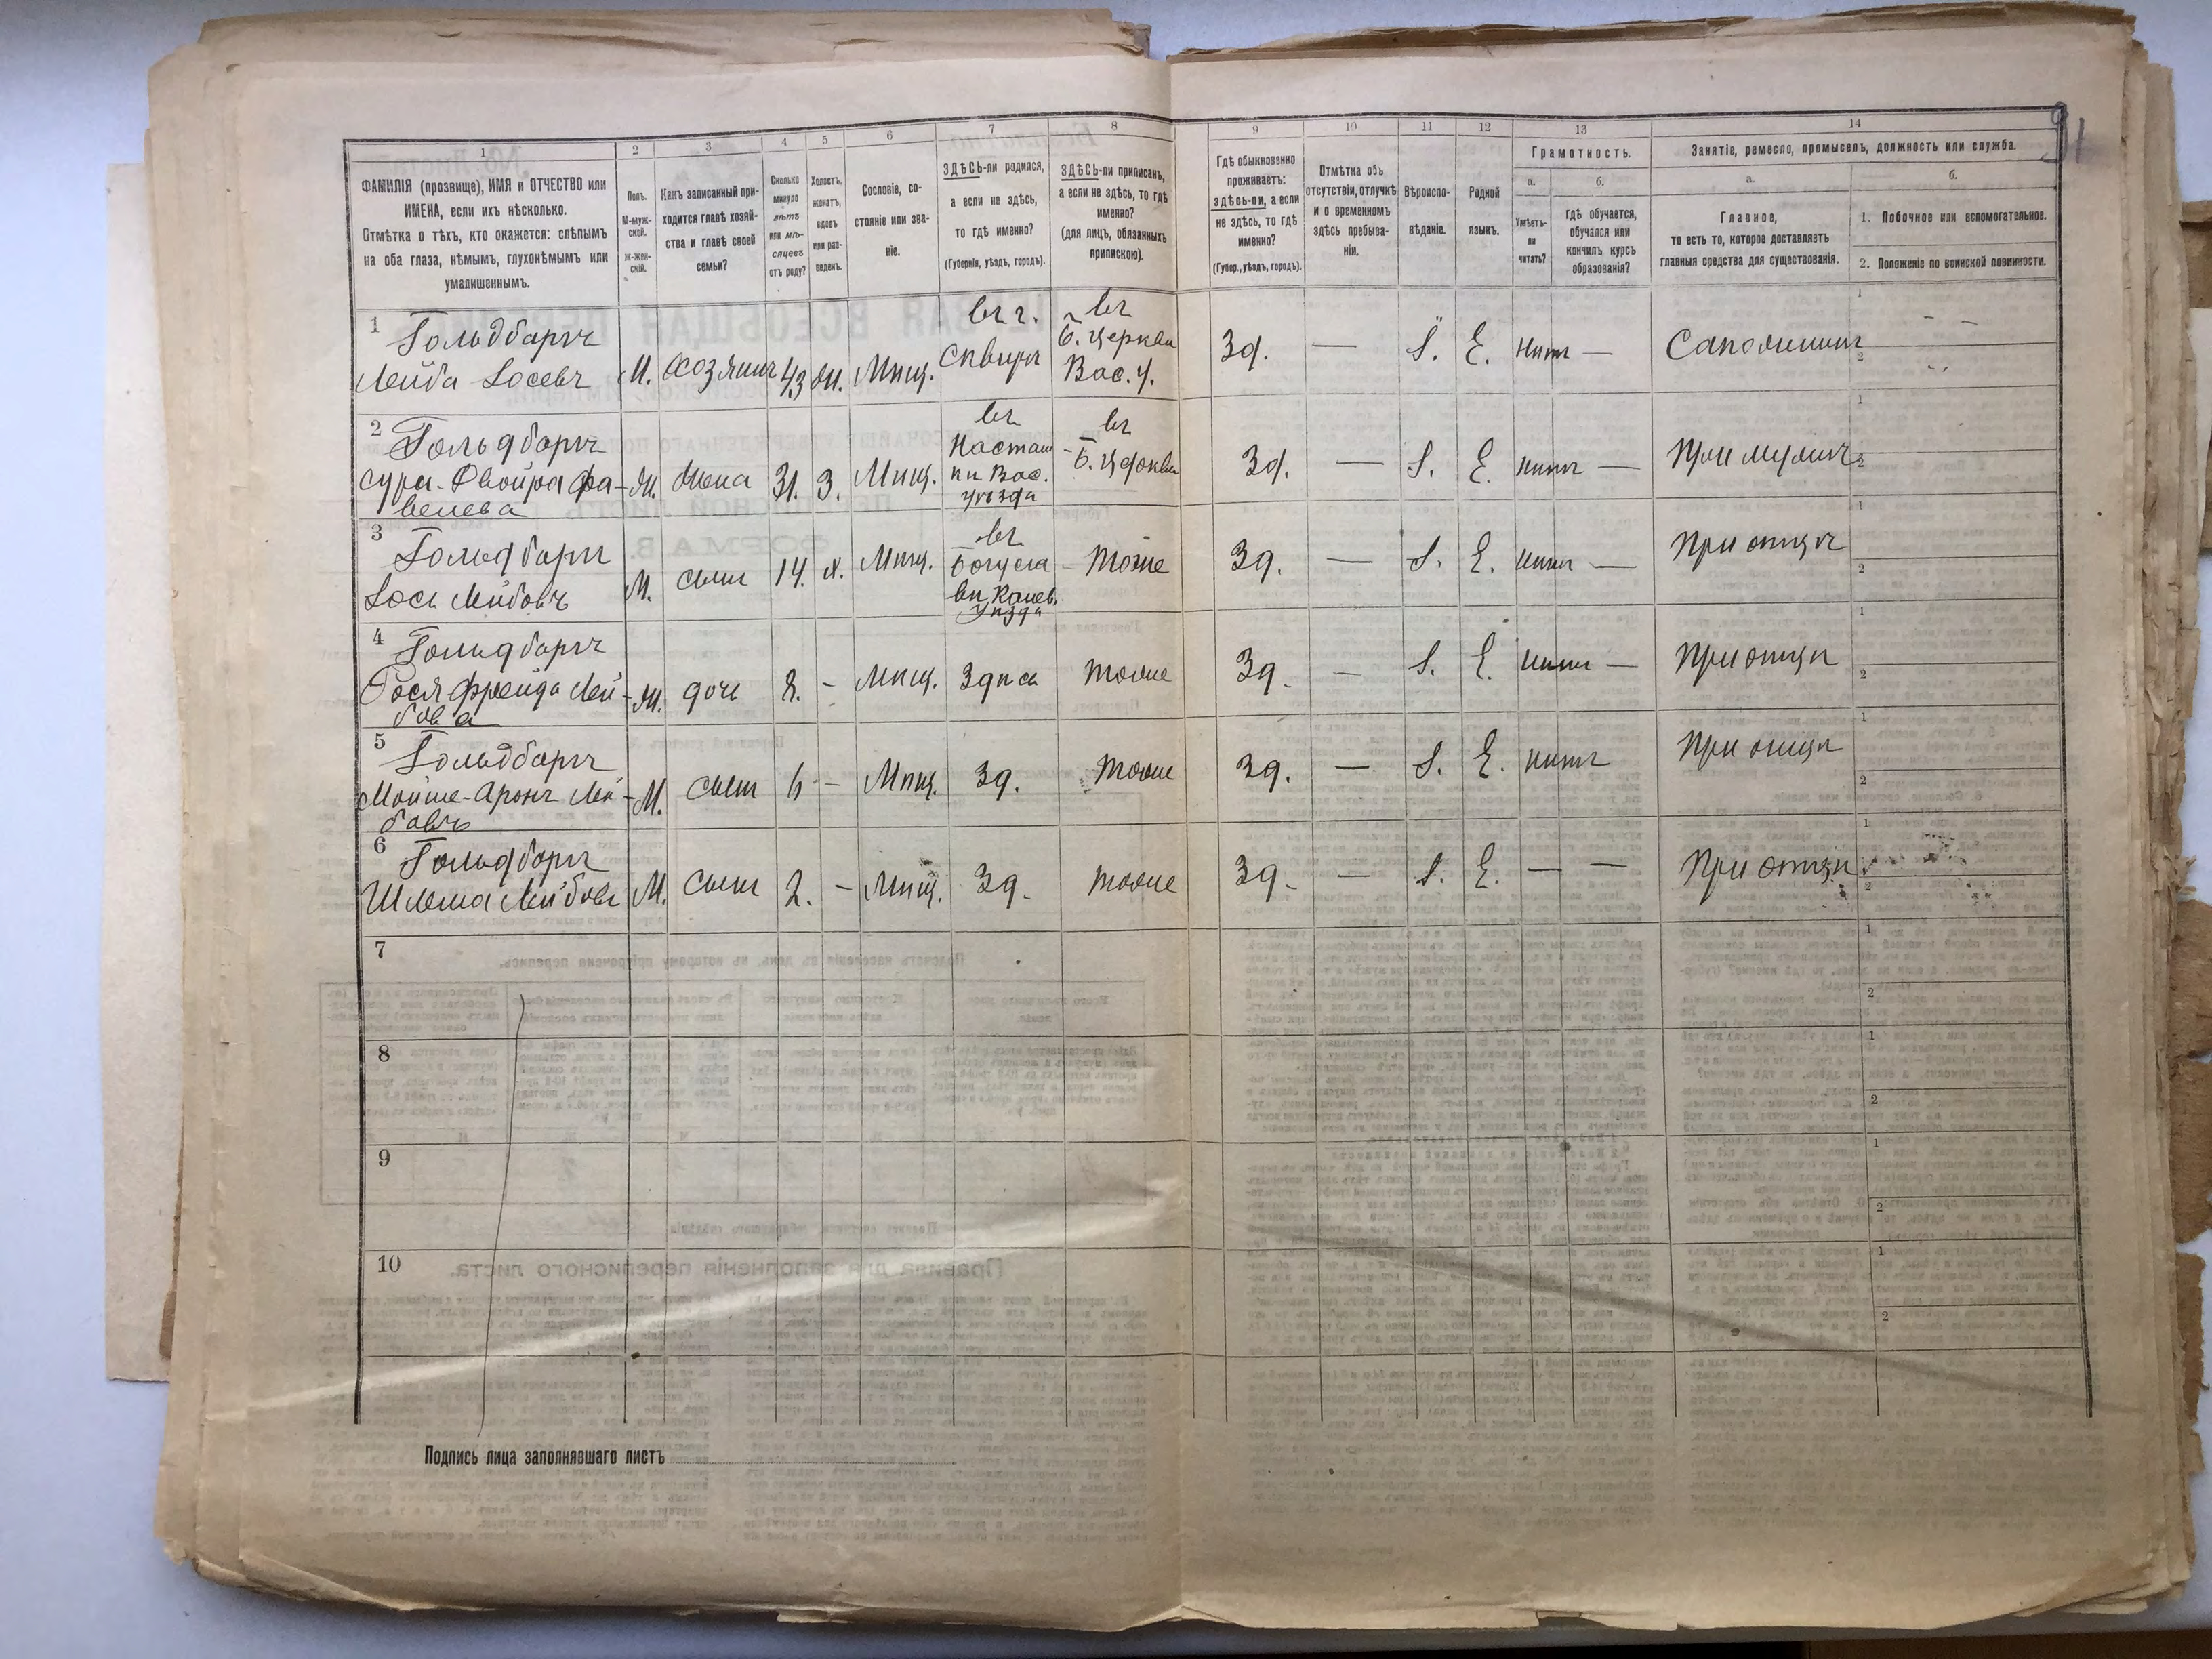 91
1 2 3 4 5 6 7 8 9 10 11 12 13 14
ФАМИЛІЯ (прозвище), ИМЯ и ОТЧЕСТВО или
ИМЕНА, если ихъ нѣсколько.
Отмѣтка о тѣхъ, кто окажется: слѣпымъ
на оба глаза, нѣмымъ, глухонѣмымъ или
умалишеннымъ.
Полъ.
М-муж-
ской.
Ж-жен-
скій.
Какъ записанный при-
ходится главѣ хозяй-
ства и главѣ своей
семьи?
Сколько
минуло
лѣтъ
или мѣ-
сяцевъ
отъ роду?
Холостъ,
женатъ,
вдовъ
или раз-
веденъ.
Сословіе, со-
стояніе или зва-
ніе.
ЗДѢСЬ-ли родился,
а если не здѣсь,
то гдѣ именно?
(Губернія, уѣздъ, городъ).
ЗДѢСЬ-ли приписанъ,
а если не здѣсь, то гдѣ
именно?
(для лицъ, обязанныхъ
припискою).
Гдѣ обыкновенно
проживаетъ:
здѣсь-ли, а если
не здѣсь, то гдѣ
именно?
(Губер., уѣздъ, городъ).
Отмѣтка объ
отсутствіи, отлучкѣ
и о временномъ
здѣсь пребыва-
ніи.
Вѣроиспо-
вѣданіе.
Родной
языкъ.
Грамотность.
а.
Умѣетъ-
ли
читать?
б.
гдѣ обучается,
обучался или
кончилъ курсъ
образованія?
Занятіе, ремесло, промыселъ, должность или служба.
а.
Главное,
то есть то, которое доставляетъ
главныя средства для существованія.
б.
1. Побочное или вспомогательное.
2. Положеніе по воинской повинности.
1
Гольдбаргъ
Лейба Іосевъ
М. хозяинъ 43 ж. Мѣщ.
въ г.
Сквирѣ
въ
Б. Церкви
Вас. у.
Зд. — І. Е. нѣтъ — Сапожникъ
1
2
2
Гольдбаргъ
Сура-Двойра
Ж. Жена 31. З. Мѣщ.
въ
Насташ
ки Вас.
уѣзда
въ
Б. Церкви
Зд. — І. Е. нѣтъ — При мужѣ
1
2
3
Гольдбаргъ
Іось Лейбовъ
М. сынъ 14. х. Мѣщ.
въ
Богусла
вѣ Канев.
Уѣзда
тоже
Зд. — І. Е. нѣтъ — При отцѣ
1
2
4
Гольдбаргъ
Фрейда Лей-
бова
Ж. дочь 8. - Мѣщ. Здѣсь тоже
Зд. — І. Е. нѣтъ — При отцѣ
1
2
5
Гольдбаргъ
Мойше-Аронъ Лей-
бовъ
М. сынъ 6 - Мѣщ. Зд. тоже
Зд. — І. Е. нѣтъ При отцѣ
1
2
6
Гольдбаргъ
Шлема Лейбовъ
М. сынъ 2. - Мѣщ. Зд. тоже
Зд. — І. Е. — — При отцѣ
1
2
7
1
2
8
1
2
9
1
2
10
1
2
Подпись лица заполнявшаго листъ